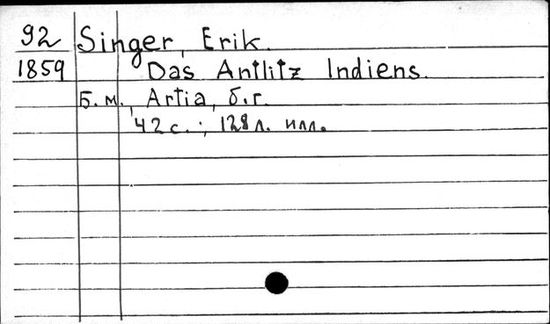 92 Singer, Erik.
1859 Das Antlitz Indiens.
Б.м., Artia, б.г.
42 с.; 128 л. илл.